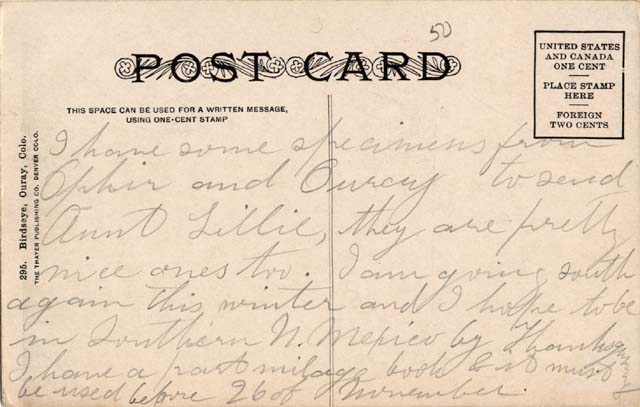 50
POST CARD
UNITED STATES
AND CANADA
ONE CENT
PLACE STAMP
HERE
FOREIGN
TWO CENTS
THIS SPACE CAN BE USED FOR A WRITTEN MESSAGE,
USING ONE-CENT STAMP
295. Birdseye, Ouray, Colo.
THE THAYER PUBLISHING CO. DENVER COLO.
I have some specimens from
Ophir and Ouray to send
Aunt Lillie, they are pretty
nice ones too. I am going south
again this winter and I hope to be
in Southern N. Mexico by Thanksgiving
I have a part milage book & it must
be used before 26 of November.